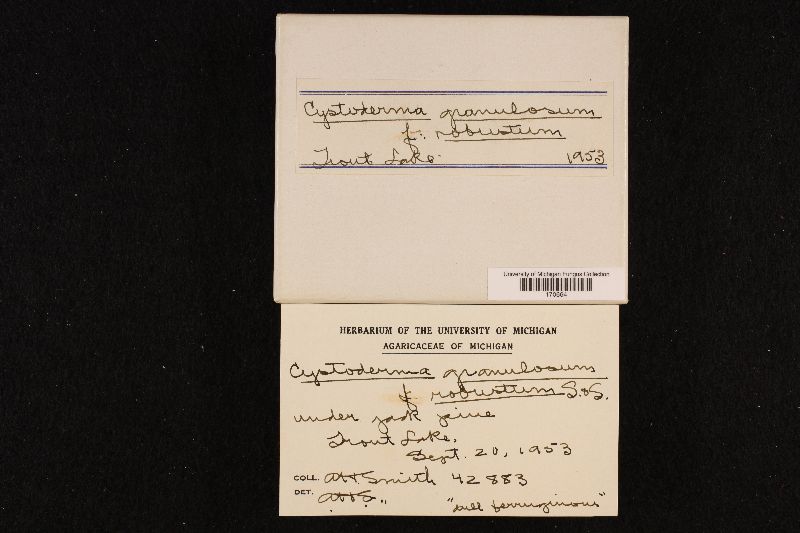 Cystoderma granulosum
f. robustum
Trout Lake. 1953
University of Michigan Fungus Collection
170664
HERBARIUM OF THE UNIVERSITY OF MICHIGAN
AGARICACEAE OF MICHIGAN
Cystoderma granulosum
f. robustum S. & S.
under jack pine
Trout Lake.
Sept. 20, 1953
COLL. AH Smith 42883
DET. AHS.
"dull ferruginous"